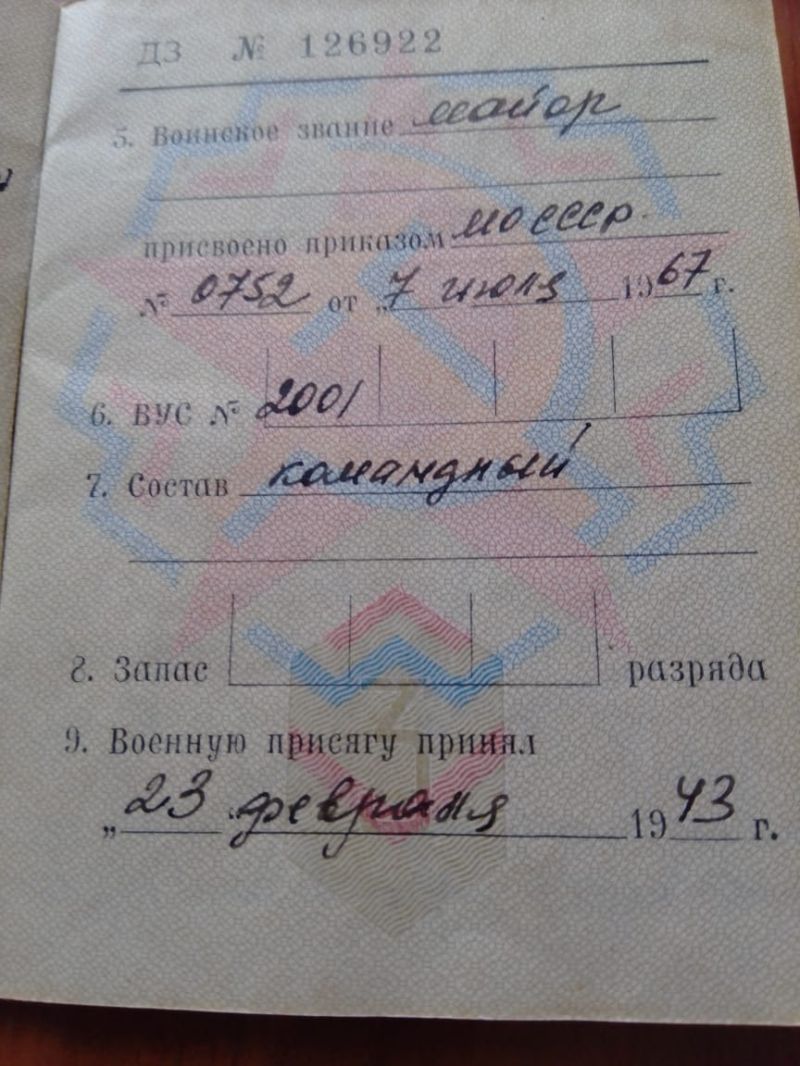 ДЗ № 126922
5. Воинское звание майор
присвоено приказом МО СССР.
№ 0752 от „7 июля 1967 г.
6. ВУС № 2001
7. Состав командный
8. Запас разряда
9. Военную присягу принял
„23 февраля 1943 г.